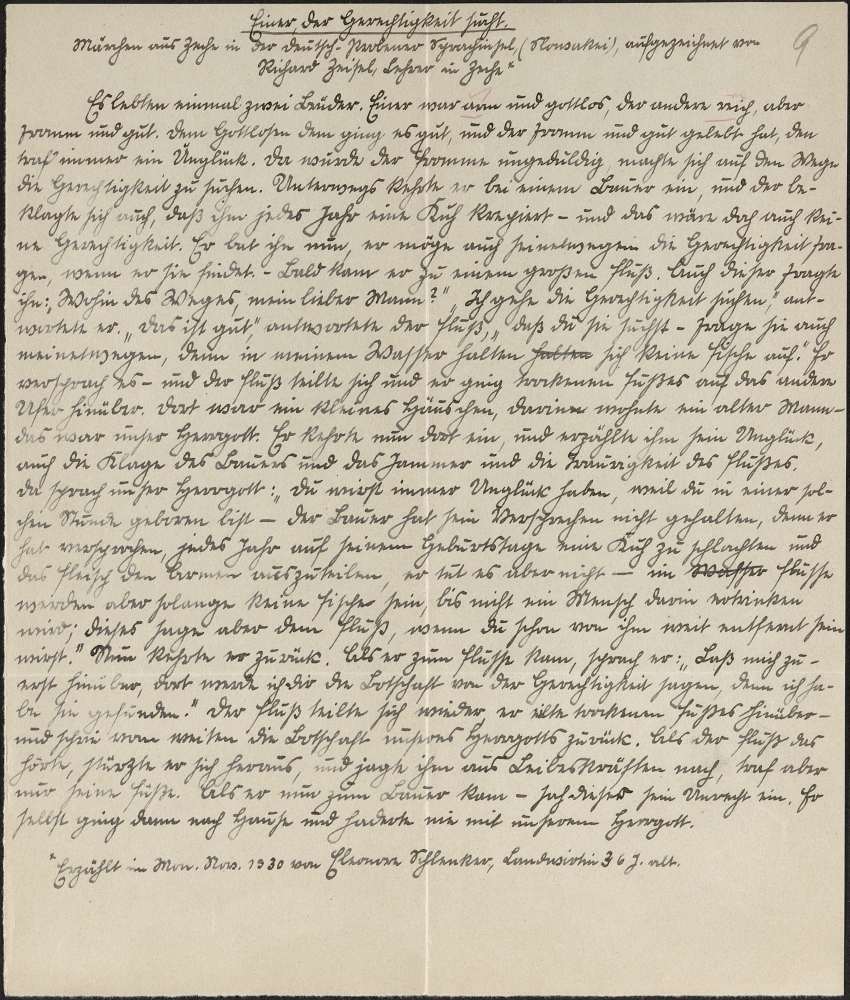 Einer, der Gerechtigkeit sucht.
9
Märchen aus Zeche in der deutsch-Probener Sprachinsel, (Slowakei), aufgezeichnet von
Richard Zeisel, Lehrer in Zeche*
Es lebten einmal zwei Brüder. Einer war arm und gottlos, der andere reich, aber
fromm und gut. Dem Gottlosen dem ging es gut, und der fromm und gut gelebt hat, den
traf immer ein Unglück. Da wurde der Fromme ungeduldig, machte sich auf den Wege
die Gerechtigkeit zu suchen. Unterwegs kehrte er bei einem Bauer ein, und der be-
klagte sich auch, daß ihm jedes Jahr eine Kuh krepiert - und das wäre doch auch kei-
ne Gerechtigkeit. Er bat ihn nun, er möge auch seinetwegen die Gerechtigkeit fra-
gen, wenn er sie findet. - Bald kam er zu einem großen Fluß. Auch dieser fragte
ihn: „Wohin des Weges, mein lieber Mann?" „Ich gehe die Gerechtigkeit suchen," ant-
wortete er. „Das ist gut," antwortete der Fluß, „daß du sie suchst - frage sie auch
meinetwegen, denn in meinem Wasser halten halten sich keine Fische auf." Er
versprach es - und der Fluß teilte sich und er ging trockenen Fußes auf das andere
Ufer hinüber. Dort war ein kleines Häuschen, darinen wohnte ein alter Mann -
das war unser Herrgott. Er kehrte nun dort ein, und erzählte ihm sein Unglück,
auch die Klage des Bauers und das Jammer und die Traurigkeit des Flußes.
Da sprach unser Herrgott: „Du wirst immer Unglück haben, weil du in einer sol-
chen Stunde geboren bist - der Bauer hat sein Versprechen nicht gehalten, denn er
hat versprochen, jedes Jahr auf seinem Geburtstage eine Kuh zu schlachten und
das Fleisch den Armen auszuteilen, er tut es aber nicht - im Wasser Flusse
werden aber solange keine Fische sein, bis nicht ein Mensch darin ertrinken
wird; dieses sage aber dem Fluß, wenn du schon von ihm weit entfernt sein
wirst." Nun kehrte er zurück. Als er zum Flusse kam, sprach er: „Laß mich zu-
erst hinüber, dort werde ich dir die Botschaft von der Gerechtigkeit sagen, denn ich ha-
be sie gefunden." Der Fluß teilte sich wieder er eilte trockenen Fußes hinüber -
und schrie vom weiten die Botschaft unseres Herrgotts zurück. Als der Fluß das
hörte, stürzte er sich heraus, und jagte ihm aus Leibeskräften nach, traf aber
nur seine Füße. Als er nun zum Bauer kam - sah dieses sein Unrecht ein. Er
selbst ging dann nach Hause und haderte nie mit unserem Herrgott.
*Erzählt im Mon. Nov. 1930 von Eleonore Schlenker, Landwirtin 36 J. alt.